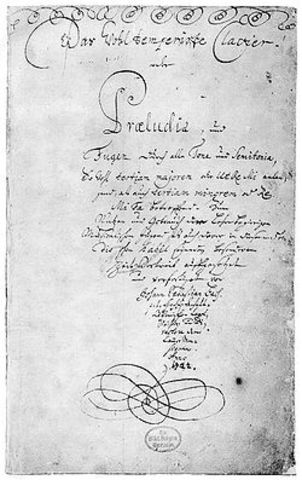 Das Wohl temperirte Clavier.
oder
Præludia, und
Fugen durch alle Tone und Semitonia,
So wohl tertiam majorem oder Ut Re Mi anlan-
gend, als auch tertiam minorem oder Re
Mi Fa betreffend. Zum
Nutzen und Gebrauch der Lehrbegierigen
Musicalischen Jugend als auch derer in diesem stu-
dio schon habil seyenden besonderen
Zeit Vertreib auffgesetzet
und verfertiget von
Johann Sebastian Bach
Anno
1722.